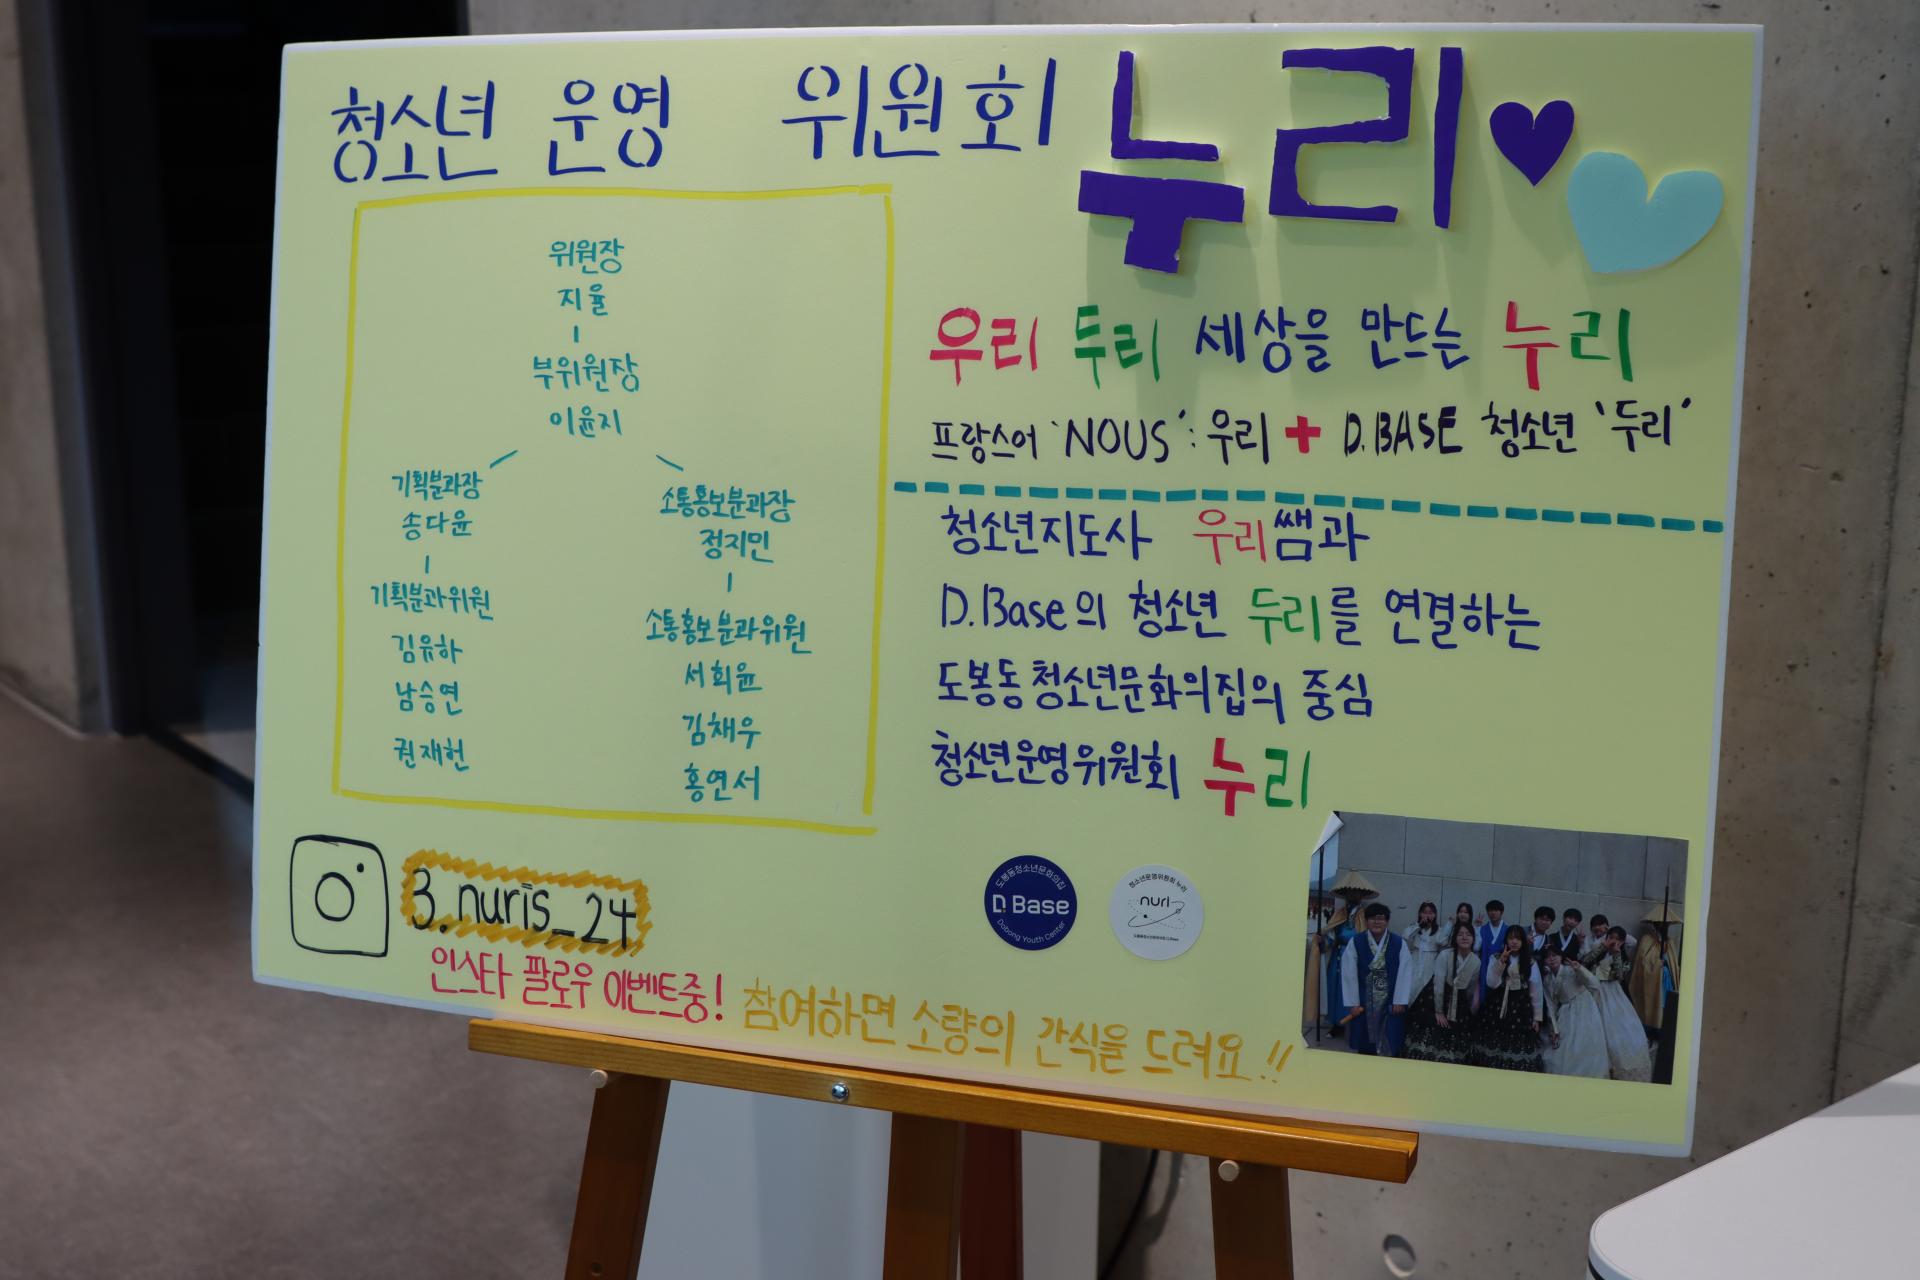 청소년 운영 위원회 누리
위원장
지율
부위원장
이윤지
기획분과장
송다윤
기획분과위원
김유하
남승연
권재헌
소통홍보분과장
정지민
소통홍보분과위원
서희윤
김채우
홍연서
우리 두리 세상을 만드는 누리
프랑스어 'NOUS': 우리 + D.BASE 청소년 '두리'
청소년지도사 우리쌤과
D.Base의 청소년 두리를 연결하는
도봉동청소년문화의집의 중심
청소년운영위원회 누리
도봉동청소년문화의집
D.Base
Dobong Youth Center
청소년운영위원회 누리
nuri
도봉동청소년문화의집 D.Base
3.nuris_24
인스타 팔로우 이벤트중! 참여하면 소량의 간식을 드려요!!